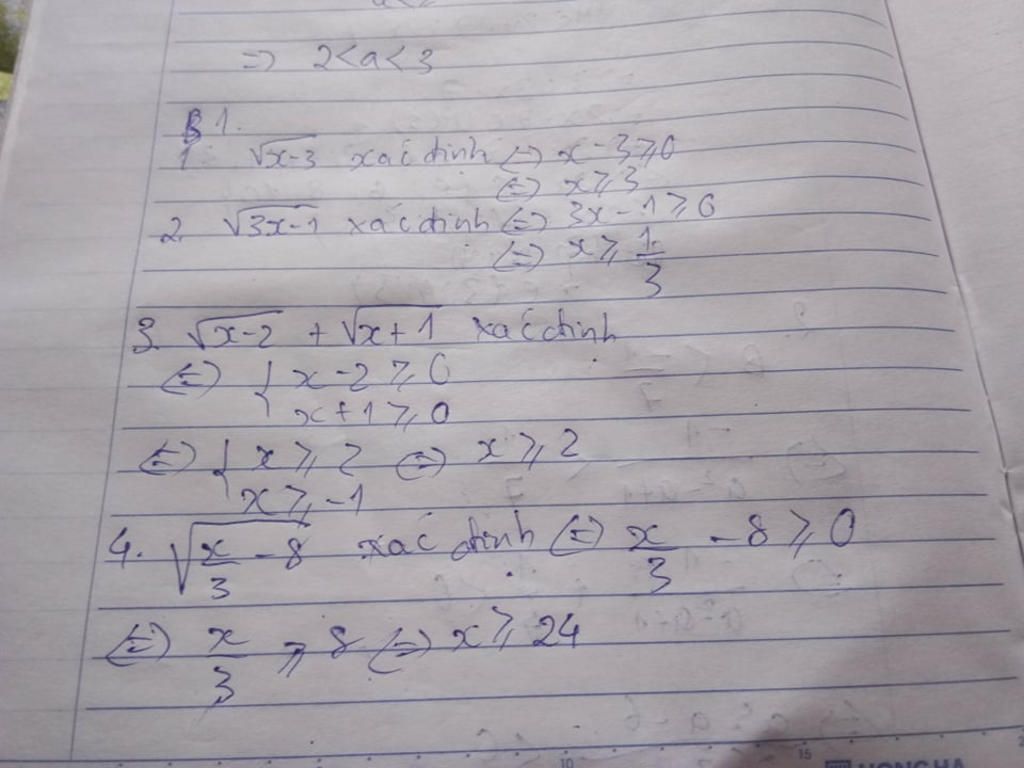 => 2<a<3
B1.
1. √x-3 xác định <=> x-3⩾0
<=> x⩾3
2. √3x-1 xác định <=> 3x-1⩾0
<=> x⩾ 1/3
3. √x-2 + √x+1 xác định
<=> { x-2⩾0
x+1⩾0
<=> { x⩾2 <=> x⩾2
x⩾-1
4. √x/3 - 8 xác định <=> x/3 - 8⩾0
<=> x/3 ⩾ 8 <=> x⩾24
10 15
HONG HA